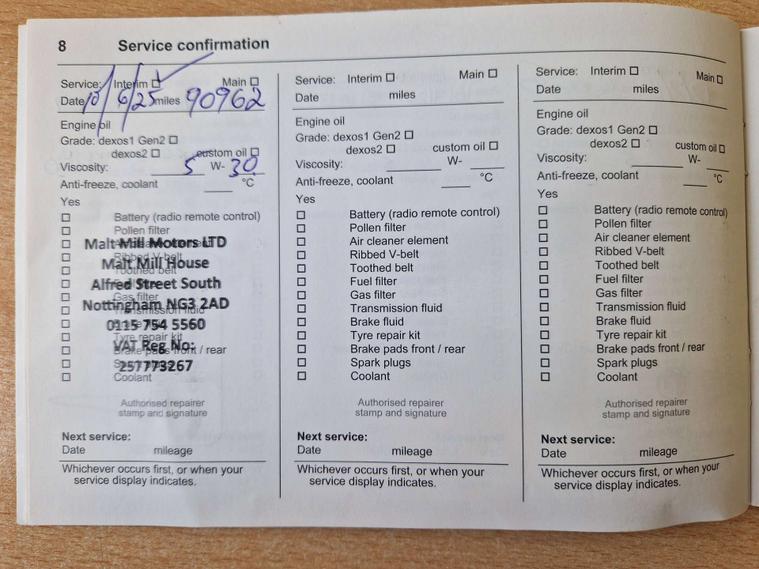 8 Service confirmation
Service: Interim ☐ Main ☐
Date 10/6/25 miles 90962
Engine oil
Grade: dexos1 Gen2 ☐
dexos2 ☐ custom oil ☐
Viscosity: 5 W- 30
Anti-freeze, coolant ____ °C
Yes
☐ Battery (radio remote control)
☐ Pollen filter
Malt Mill Motors LTD
☐ Ribbed V-belt
Malt Mill House
☐ Toothed belt
Alfred Street South
☐ Gas filter
Nottingham NG3 2AD
☐ Transmission fluid
0115 754 5560
☐ Tyre repair kit
VAT Reg No:
☐ Brake pads front / rear
257773267
☐ Coolant
Authorised repairer
stamp and signature
Next service:
Date mileage
Whichever occurs first, or when your
service display indicates.
Service: Interim ☐ Main ☐
Date miles
Engine oil
Grade: dexos1 Gen2 ☐
dexos2 ☐ custom oil ☐
Viscosity: ____ W- ____
Anti-freeze, coolant ____ °C
Yes
☐ Battery (radio remote control)
☐ Pollen filter
☐ Air cleaner element
☐ Ribbed V-belt
☐ Toothed belt
☐ Fuel filter
☐ Gas filter
☐ Transmission fluid
☐ Brake fluid
☐ Tyre repair kit
☐ Brake pads front / rear
☐ Spark plugs
☐ Coolant
Authorised repairer
stamp and signature
Next service:
Date mileage
Whichever occurs first, or when your
service display indicates.
Service: Interim ☐ Main ☐
Date miles
Engine oil
Grade: dexos1 Gen2 ☐
dexos2 ☐ custom oil ☐
Viscosity: ____ W- ____
Anti-freeze, coolant ____ °C
Yes
☐ Battery (radio remote control)
☐ Pollen filter
☐ Air cleaner element
☐ Ribbed V-belt
☐ Toothed belt
☐ Fuel filter
☐ Gas filter
☐ Transmission fluid
☐ Brake fluid
☐ Tyre repair kit
☐ Brake pads front / rear
☐ Spark plugs
☐ Coolant
Authorised repairer
stamp and signature
Next service:
Date mileage
Whichever occurs first, or when your
service display indicates.